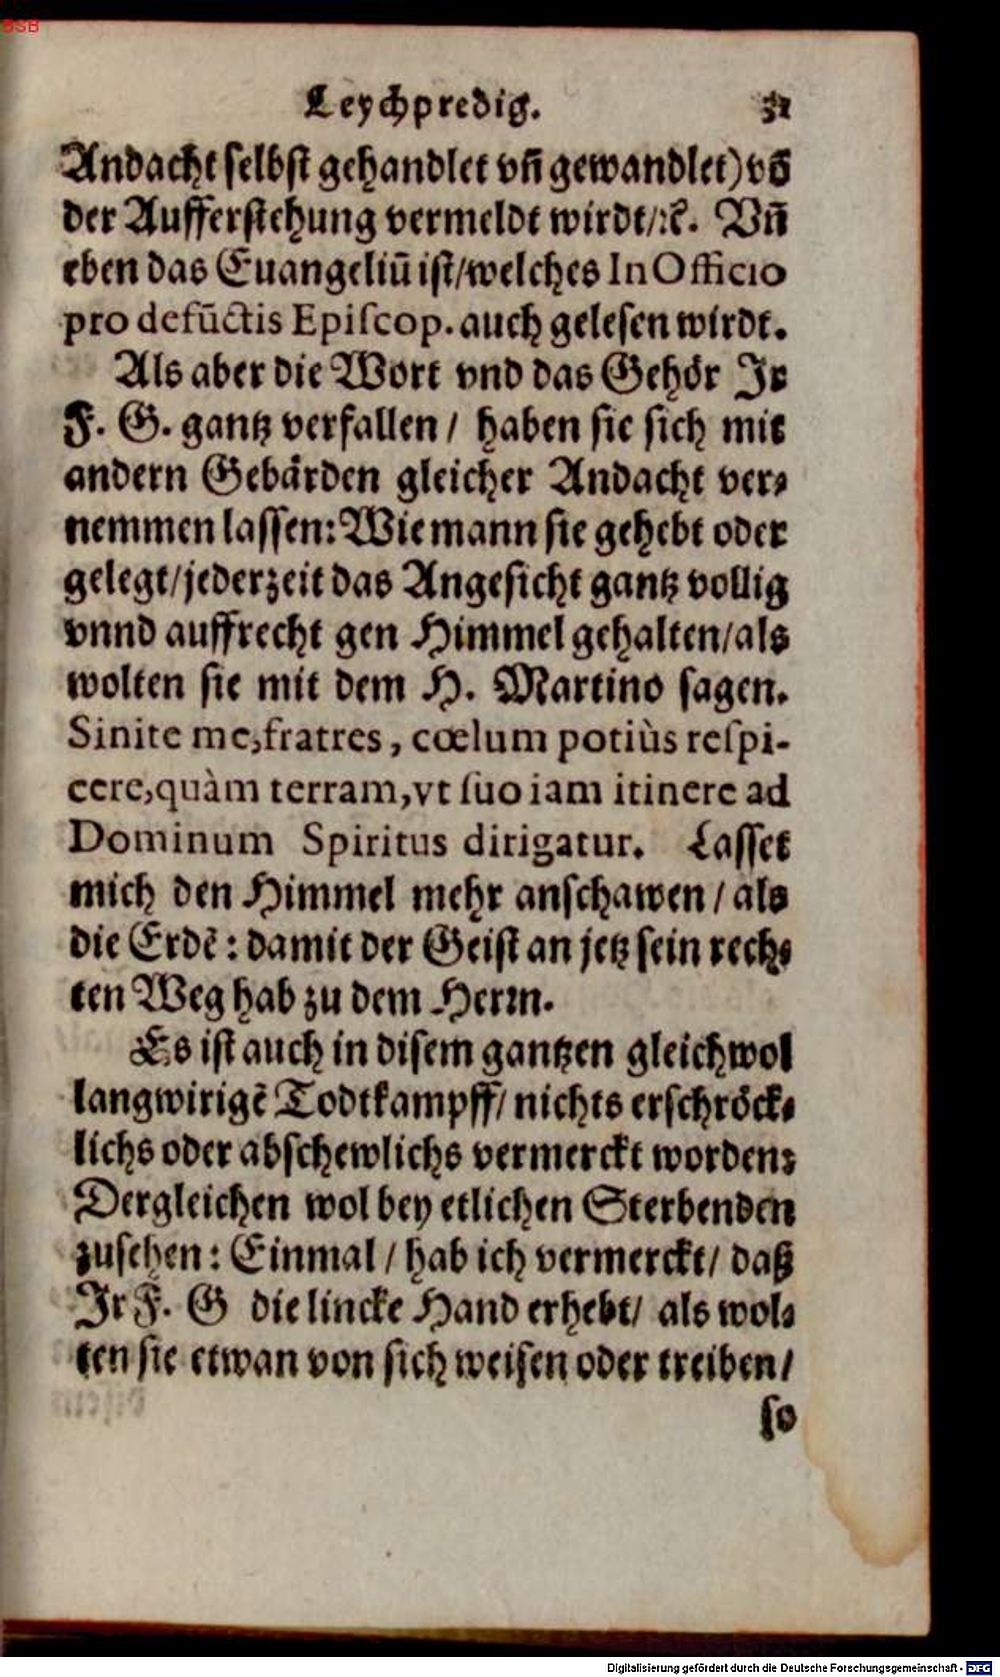 BSB
Leychpredig. 31
Andacht selbst gehandlet vñ gewandlet) võ
der Aufferstehung vermeldt wirdt/ꝛc. Vñ
eben das Euangeliũ ist/welches In Officio
pro defũctis Episcop. auch gelesen wirdt.
Als aber die Wort vnd das Gehör Jr
F. G. gantz verfallen / haben sie sich mit
andern Gebärden gleicher Andacht ver⸗
nemmen lassen: Wie mann sie gehebt oder
gelegt/jederzeit das Angesicht gantz vollig
vnnd auffrecht gen Himmel gehalten/als
wolten sie mit dem H. Martino sagen.
Sinite me, fratres, cœlum potiùs respi-
cere, quàm terram, vt suo iam itinere ad
Dominum Spiritus dirigatur. Lasset
mich den Himmel mehr anschawen / als
die Erdẽ: damit der Geist an jetz sein rech⸗
ten Weg hab zu dem Herꝛn.
Es ist auch in disem gantzen gleichwol
langwirigẽ Todtkampff/ nichts erschröck⸗
lichs oder abschewlichs vermerckt worden:
Dergleichen wol bey etlichen Sterbenden
zusehen: Einmal / hab ich vermerckt/ daß
Jr F. G die lincke Hand erhebt/ als wol⸗
ten sie etwan von sich weisen oder treiben/
so
Digitalisierung gefördert durch die Deutsche Forschungsgemeinschaft - DFG